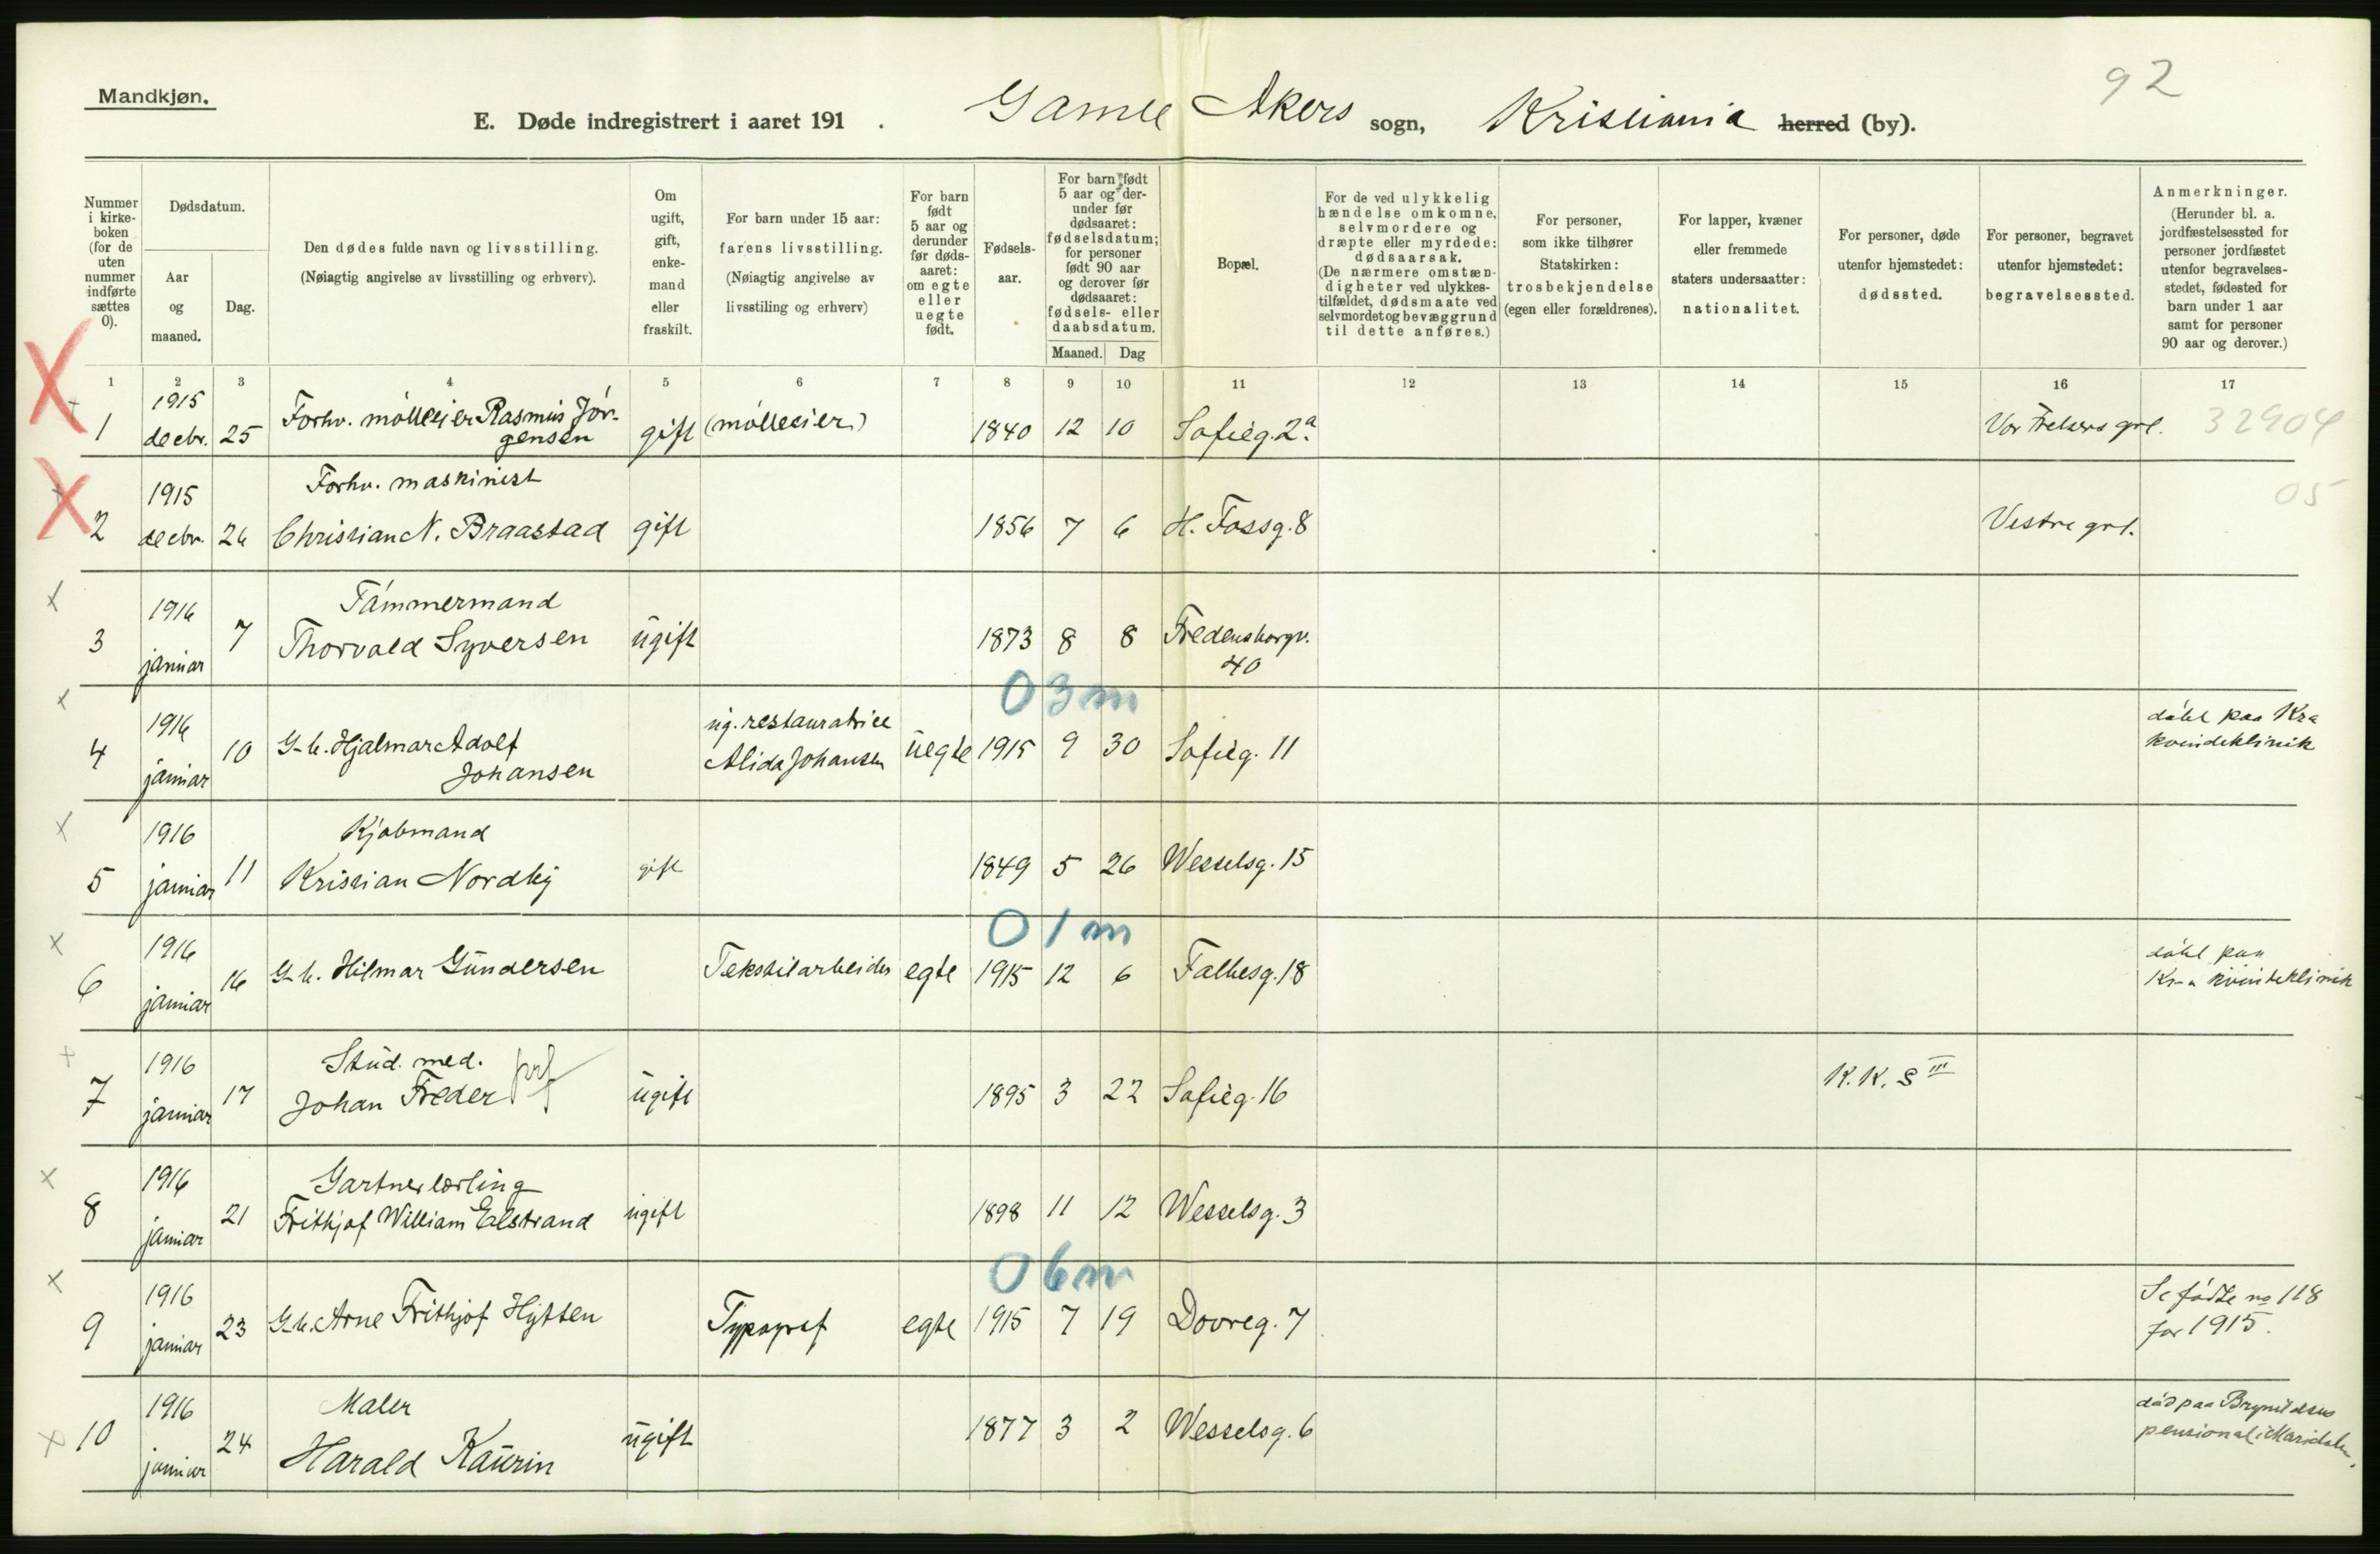 Mandkjøn.
92
E. Døde indregistrert i aaret 191 . Gamle Akers sogn, Kristiania herred (by).
Nummer i kirke-boken (for de uten nummer indførte sættes 0).
Dødsdatum.
Aar og maaned.
Dag.
Den dødes fulde navn og livsstilling.
(Nøiagtig angivelse av livsstilling og erhverv).
Om ugift, gift, enke-mand eller fraskilt.
For barn under 15 aar: farens livsstilling.
(Nøiagtig angivelse av livsstiling og erhverv)
For barn født 5 aar og derunder før døds-aaret: om egte eller uegte født.
Fødsels-aar.
For barn født 5 aar og der-under før dødsaaret: fødselsdatum; for personer født 90 aar og derover før dødsaaret: fødsels- eller daabsdatum.
Maaned. Dag
Bopæl.
For de ved ulykkelig hændelse omkomne, selvmordere og dræpte eller myrdede: dødsaarsak.
(De nærmere omstæn-digheter ved ulykkes-tilfældet, dødsmaate ved selvmordet og bevæggrund til dette anføres.)
For personer, som ikke tilhører Statskirken: trosbekjendelse (egen eller forældrenes).
For lapper, kvæner eller fremmede staters undersaatter: nationalitet.
For personer, døde utenfor hjemstedet: dødssted.
For personer, begravet utenfor hjemstedet: begravelsessted.
Anmerkninger.
(Herunder bl. a. jordfæstelsessted for personer jordfæstet utenfor begravelses-stedet, fødested for barn under 1 aar samt for personer 90 aar og derover.)
1 2 3 4 5 6 7 8 9 10 11 12 13 14 15 16 17
1 1915 decbr. 25 Forhv. mölleeier Rasmus Jör-gensen gift (mölleeier) 1840 12 10 Sofieg. 2a. Vor Frelsers grl. 32904
2 1915 decbr. 26 Forhv. maskinist Christian N. Braastad gift 1856 7 6 H. Fossg. 8 Vestre grl. 05
3 1916 januar 7 Tömmermand Thorvald Syversen ugift 1873 8 8 Fredensborgv. 40
03m
4 1916 januar 10 G-b. Hjalmar Adolf Johansen ug. restauratrice Alida Johansen uegte 1915 9 30 Sofieg. 11 döbt paa Kra kvindeklinik
5 1916 januar 11 Kjöbmand Kristian Nordby gift 1849 5 26 Wesselsg. 15
01m
6 1916 januar 16 G-b. Hilmar Gundersen Tekstilarbeider egte 1915 12 6 Falbesg. 18 döbt paa Kr-a kvindeklinik
7 1916 januar 17 Stud. med. Johan Freder ugift 1895 3 22 Sofieg. 16 K.K.S III
8 1916 januar 21 Gartnerlærling Frithjof William Ekstrand ugift 1898 11 12 Wesselsg. 3
06m
9 1916 januar 23 G-b. Arne Frithjof Hytten Typograf egte 1915 7 19 Dovreg. 7 Se födte no 118 for 1915.
10 1916 januar 24 Maler Harald Kaurin ugift 1877 3 2 Wesselsg. 6 död paa Brynildsens pensionat i Maridalen.